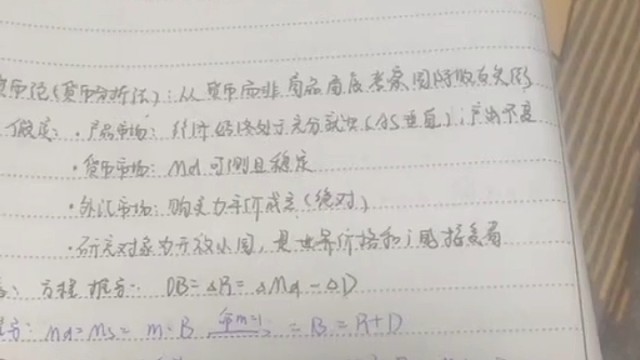 货币论(货币分析法):从货币而非商品角度考察国际收支失衡
假定:·产品市场:经济始终处于充分就业(AS垂直);产出不变
·货币市场:Md可测且稳定
·外汇市场:购买力平价成立(绝对)
·研究对象为开放小国,是世界价格和i的接受者
方程推方: OB=ΔR=ΔMd-ΔD
方: Md=Ms=m·B 令m=1 =B=R+D